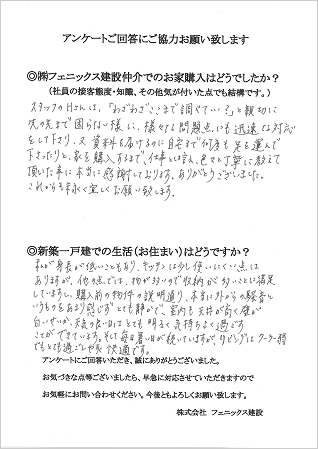 アンケートご回答にご協力お願い致します
◎㈱フェニックス建設仲介でのお家購入はどうでしたか?
(社員の接客態度・知識、その他気が付いた点でも結構です。)
スタッフのHさんは、「わざわざここまで調べてい?」と親切に
先の先まで困らない様に、様々な問題点にも迅速な対応
をして下さり、又資料を届けるのに自宅まで何度も足を運んで
下さったりと、家を購入するまで、仕事とは言え、色々と丁寧に教えて
頂いた事に本当に感謝しております。ありがとうございました。
これからも末永く宜しくお願い致します。
◎新築一戸建での生活(お住まい)はどうですか?
私が身長が低いこともあり、キッチンは少し使いにくい点は
ありますが、他の点では、物が多いので収納が多いことに満足
していますし、購入前の物件の説明通り、本当に外からの騒音と
いうものをあまり感じずとても静かで、室内も天井が高く壁が
白いせいか、天気の良い日はとても明るく気持ちよく過ごす
ことができています。そして毎日暑い日が続いていますが、リビングはクーラー1台
でもとても過ごしやすく快適です。
アンケートにご回答いただき、誠にありがとうございました。
お気づきな点等ございましたら、早急に対応させていただきますので
お気軽にお問い合わせください。今後ともよろしくお願い致します。
株式会社 フェニックス建設